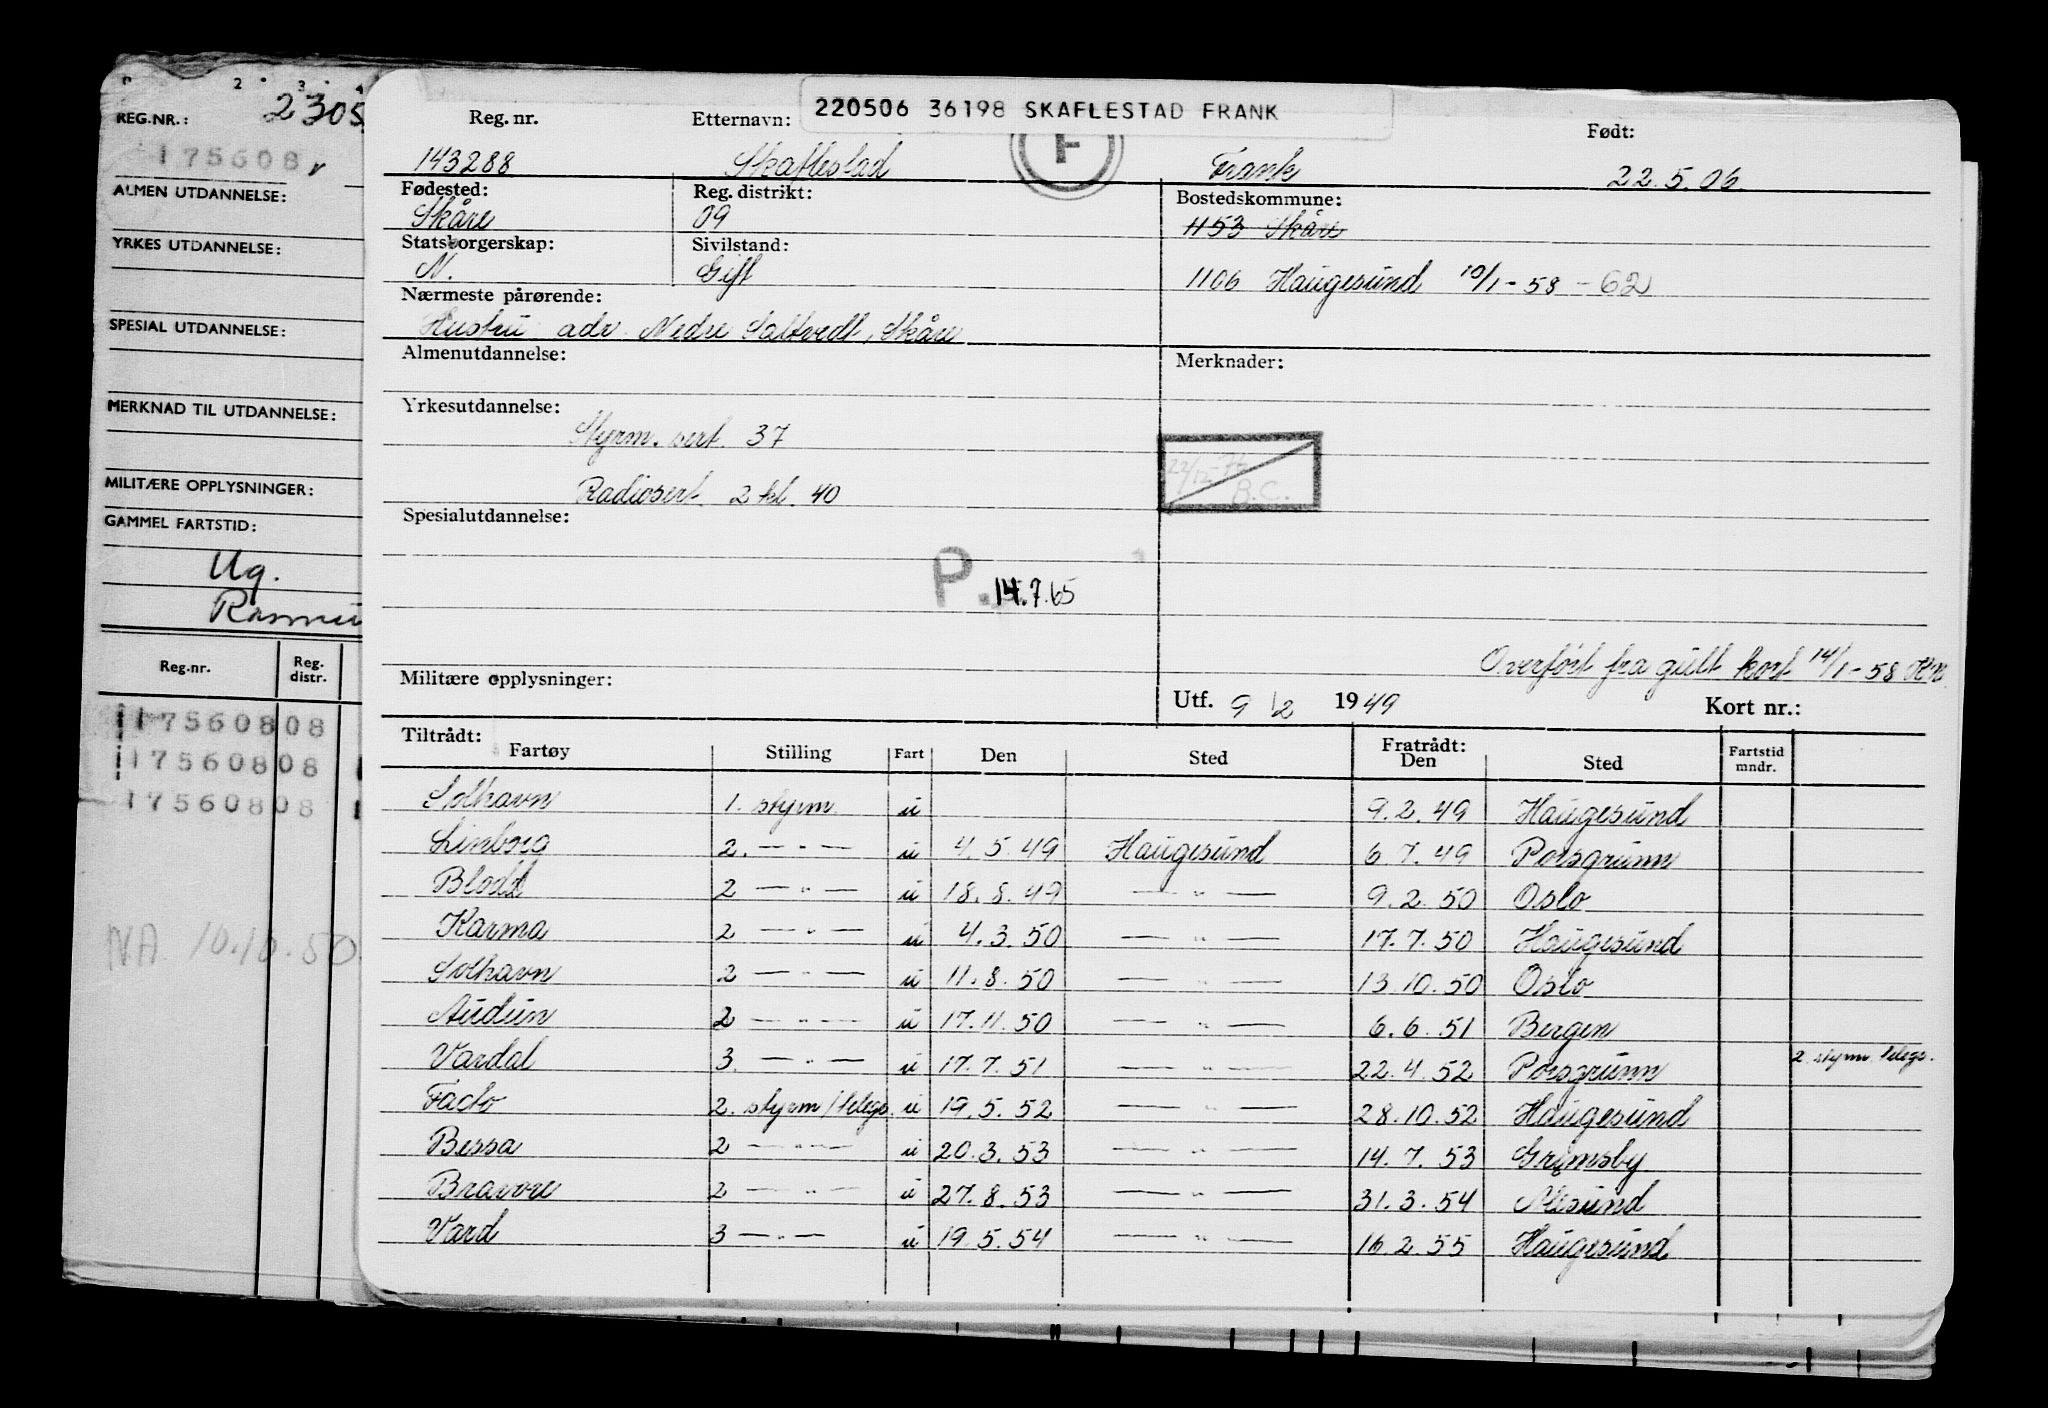 2 3 4
REG.NR.: 2305
175608
ALMEN UTDANNELSE:
YRKES UTDANNELSE:
SPESIAL UTDANNELSE:
MERKNAD TIL UTDANNELSE:
MILITÆRE OPPLYSNINGER:
GAMMEL FARTSTID:
Ug.
Reg.nr. Reg. distr.
17560808
17560808
17560808
NA 10.10.50.
220506 36198 SKAFLESTAD FRANK
Reg. nr. Etternavn: Født:
F
143288 Skaflestad Frank 22.5.06
Fødested: Reg. distrikt: Bostedskommune:
Skåre 09 1153 Skåre
Statsborgerskap: Sivilstand:
N. Gift 1106 Haugesund 10/1-58 -62
Nærmeste pårørende:
Hustru adr. Nedre Saltvedt, Skåre
Almenutdannelse: Merknader:
Yrkesutdannelse:
Styrm. sert. 37
22/12-76 B.C.
Radiosert. 2 kl. 40
Spesialutdannelse:
P. 14.7.65
Overført fra gult kort 14/1-58
Militære opplysninger:
Utf. 9/2 1949 Kort nr.:
Tiltrådt: Fratrådt:
Fartøy Stilling Fart Den Sted Den Sted Fartstid mndr.
Solhavn 1. styrm. u 9.2.49 Haugesund
Linborg 2. — " — u 4.5.49 Haugesund 6.7.49 Porsgrunn
Blodd 2 — " — u 18.8.49 — " — 9.2.50 Oslo
Karma 2 — " — u 4.3.50 — " — 17.7.50 Haugesund
Solhavn 2 — " — u 11.8.50 — " — 13.10.50 Oslo
Audun 2 — " — u 17.11.50 — " — 6.6.51 Bergen
Vardal 3. — " — u 17.7.51 — " — 22.4.52 Porsgrunn 2 styrm. telegr.
Facto 2. styrm/telegr. u 19.5.52 — " — 28.10.52 Haugesund
Bessa 2 — " — u 20.3.53 — " — 14.7.53 Grimsby
Bravore 2 — " — u 27.8.53 — " — 31.3.54 Ålesund
Vard 3 — " — u 19.5.54 — " — 16.2.55 Haugesund